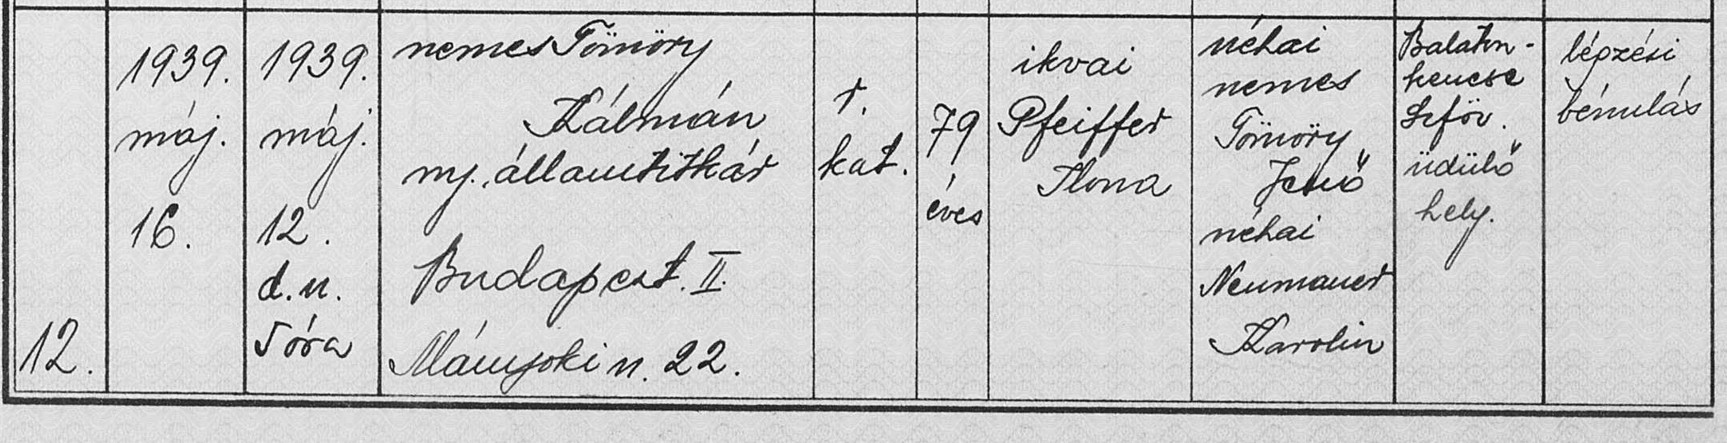 12.
1939.
máj.
16.
1939.
máj.
12.
d.u.
5 óra
nemes Tömöry
Kálmán
ny. államtitkár
Budapest. II.
Mányoki u. 22.
r.
kat.
79
éves
ikvai
Pfeiffer
Ilona
néhai
nemes
Tömöry
Jenő
néhai
Neumauer
Karolin
Balaton-
kenese
Szföv.
üdülő
hely.
légzési
bénulás